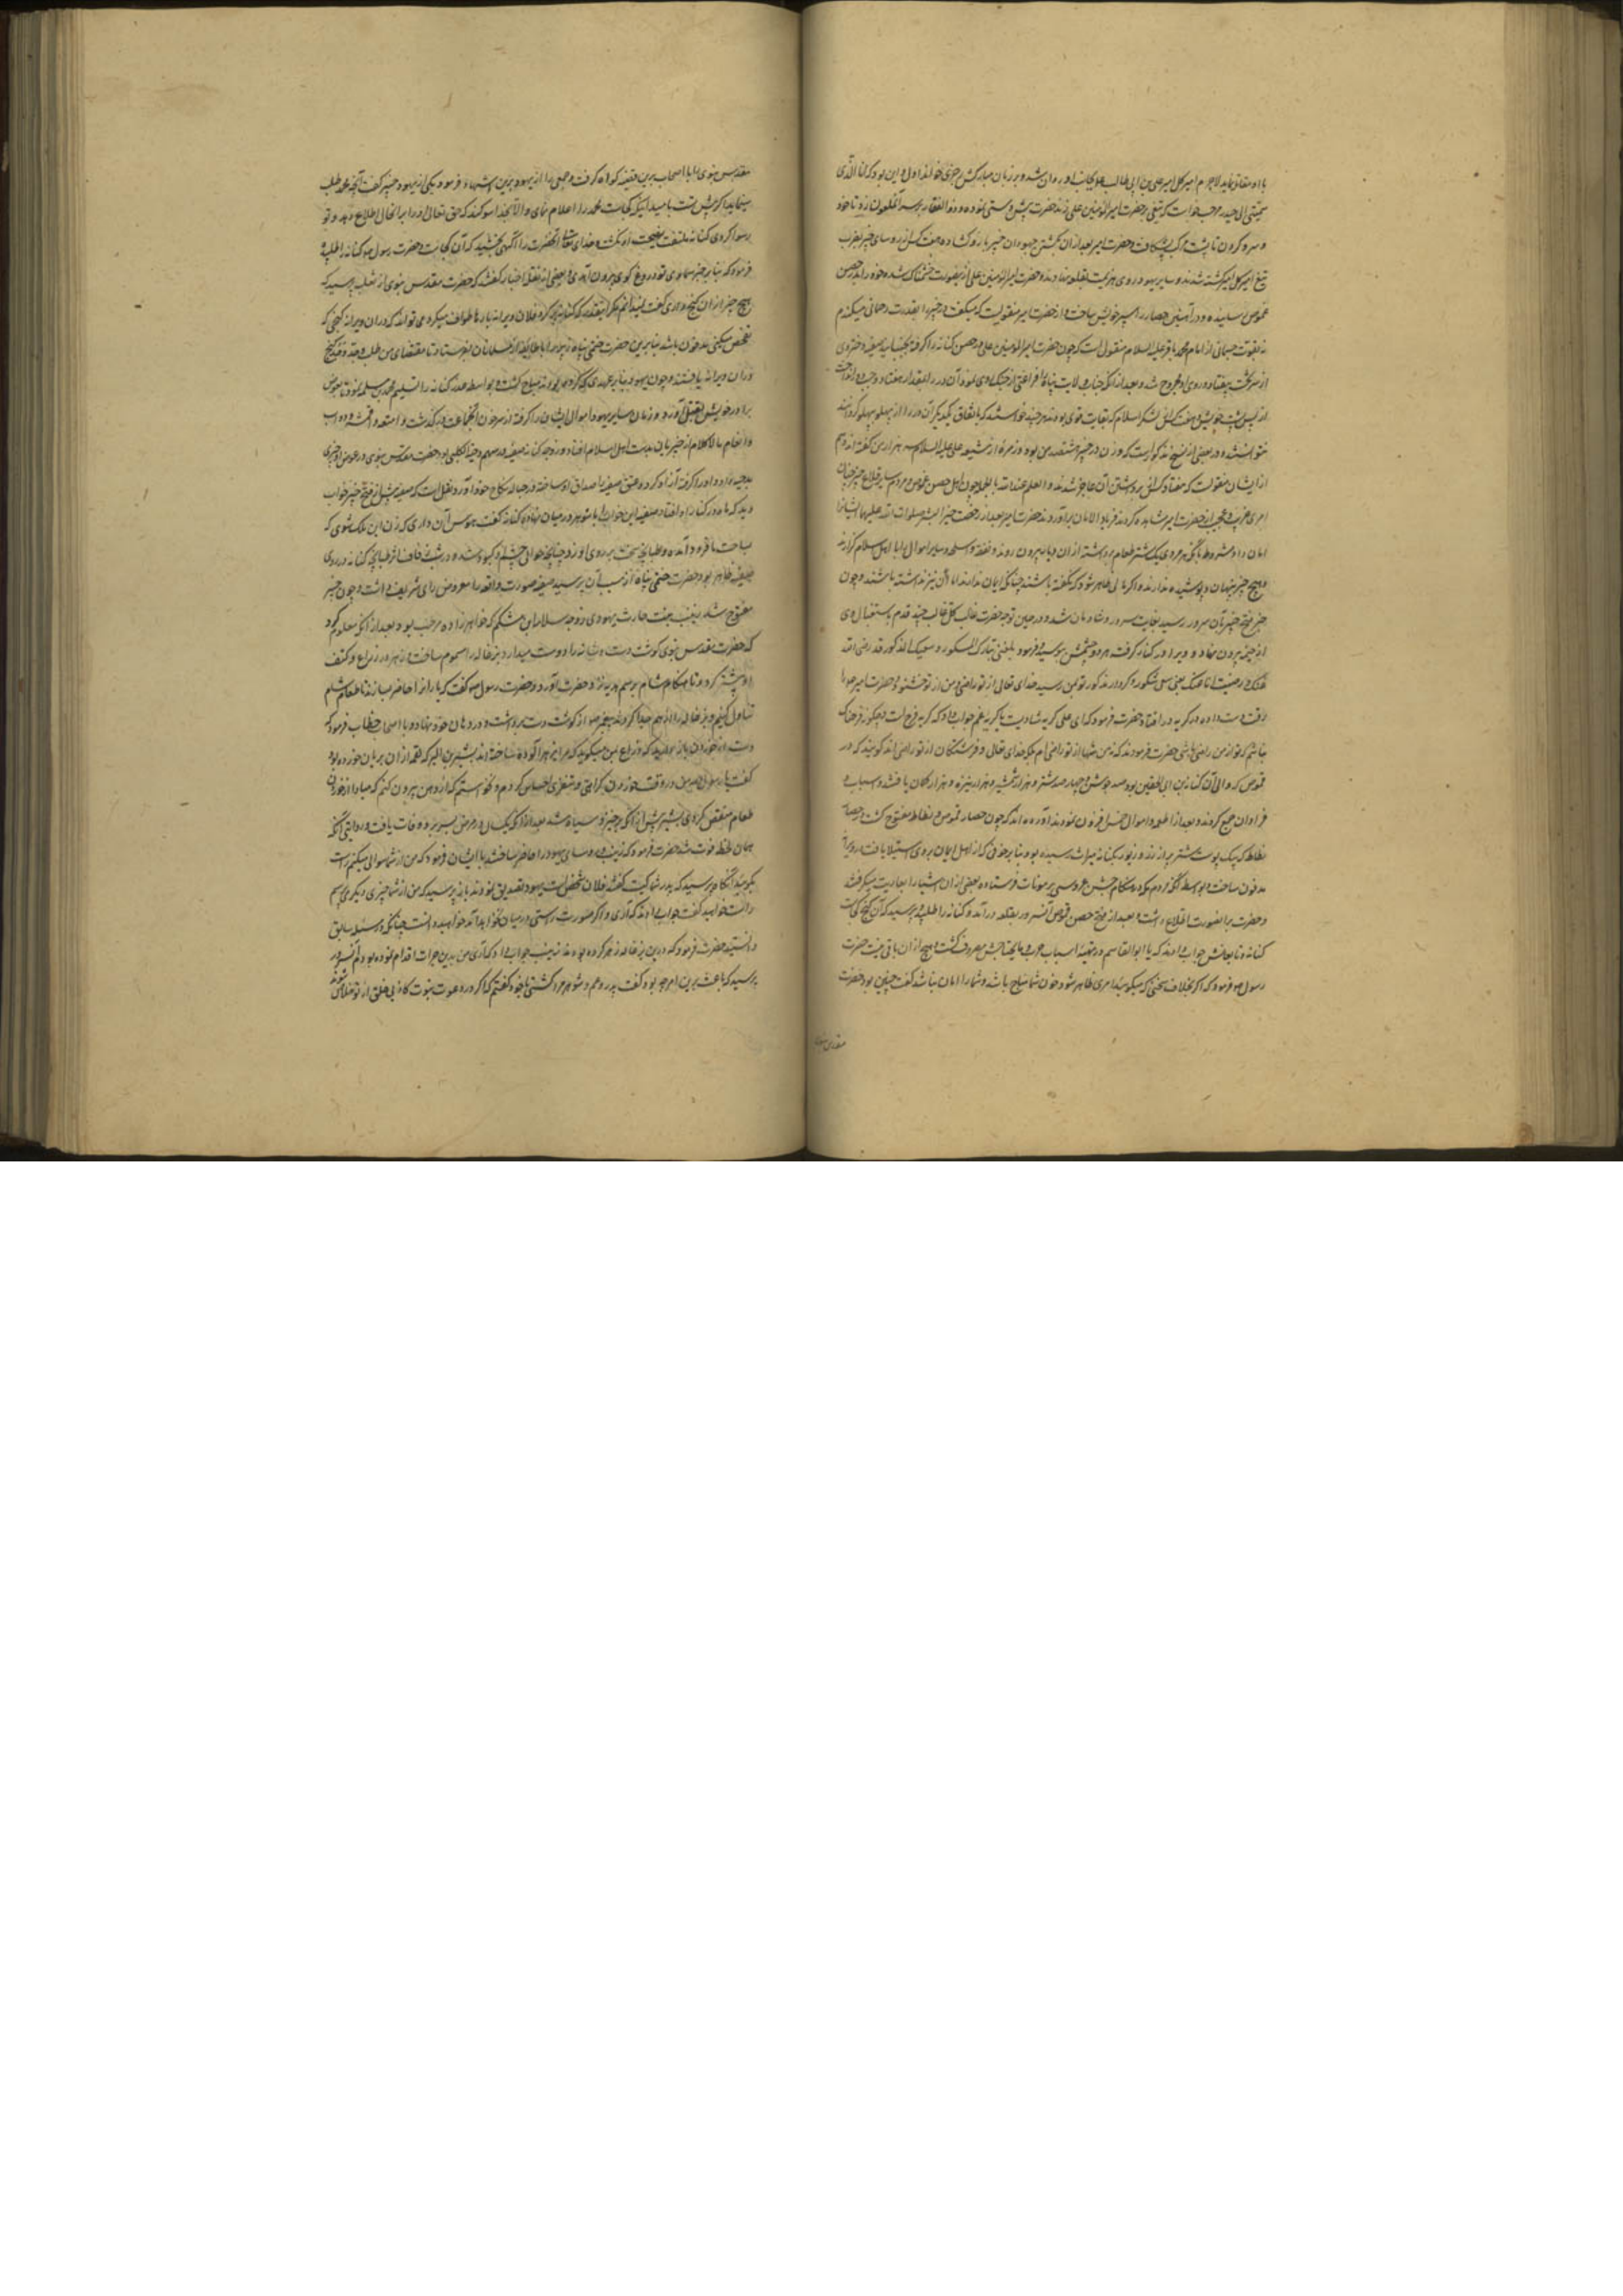 با او مقاتله نماید لاجرم امیر کل امیر علی بن ابی طالب علم بجانب او روان شد و بر زبان مبارکش رجزی جاری اول این بود که انا الذی
سمتنی امی حیدره مرحب خواست که تیغی بر حضرت امیرالمؤمنین علی زند حضرت پیش دستی نموده و ذوالفقار بر سر آنملعون زد تا خود
و سر و گردن تا پشت مرکب بشکافت و حضرت امیر بعد از ان بکشتن جهودان خیبر بازو کشاده هفت کس از رؤسای خیبر بضرب
تیغ امیر کل امیر کشته شدند و سایر یهود روی هزیمت بقلعه نهادند و حضرت امیرالمؤمنین علی از پی ایشان شده خود را بدر حصن
قموص رسانیده و در آهنین حصار را سپر خویش ساخت و از حضرت امیر منقولست که میگفت در خیبر را بقدرت رحمانی میکندم
نه بقوت جسمانی از امام محمد باقر علیه السلام منقول است که چون حضرت امیرالمؤمنین علی در حصن کنانه را گرفته
و بعد از انکه جناب ولایت پناه را فراغتی از جنک روی نمود آن در را بمقدار هفتاد وجب دور انداخت
از پس پشت خویش و هفت کس از لشکر اسلام که بغایت قوی بودند هر چند خواستند که باتفاق یکدیگر آن در را از پهلو به پهلو گردانند
نتوانستند و در بعضی از نسخ مذکور است که وزن در خیبر هشتصد من بود و زمره از شیعه علی علیه السلام سه هزار من گفته اند و هم
از ایشان منقولست که هفتاد کس از برداشتن آن عاجز شدند و العلم عندالله بالجمله چون اهل حصن قموص و مردم سایر قلاع خیبر چنان
امری غریب و عجیب از حضرت امیر مشاهده کردند فریاد الامان برآوردند حضرت امیر بعد از رخصت خیر البشر صلوات الله علیهما ایشانرا
امان داد مشروط بانکه هر مردی یک شتر طعام برداشته از ان دیار بیرون روند و نقد و اسلحه و سایر اموال را با اهل اسلام گذارند
و هیچ چیز پنهان و پوشیده ندارند و اگر مالی ظاهر شود که نگفته باشند چنانکه ایمان ندارند امان نیز نداشته باشند و چون
خبر فتح خیبر بآن سرور رسید بغایت مسرور و شادمان شد و در حین توجه حضرت غالب کل غالب چند قدم باستقبال وی
از خیمه بیرون نهاد و ویرا در کنار گرفت هر دو چشمش ببوسید و فرمود بلغنی نباک المشکور و سعیک المذکور قد رضی الله
عنک و رضیت انا عنک یعنی سعی مشکور و کردار مذکور تو بمن رسید خدای تعالی از تو راضی و من از تو خشنودم حضرت امیر را
رقت دست داده در گریه در افتاد حضرت فرمود که ای علی گریه شادیست یا گریه غم جواب داد که گریه فرح است و چگونه فرحناک
نباشم که تو از من راضی باشی حضرت فرمودند که نه من تنها از تو راضی ام بلکه خدای تعالی و فرشتگان از تو راضی اند گویند که در
قموص که والی آن کنانه بن ابی الحقیق بود صد جوشن و چهارصد شتر و هزار شمشیر و هزار نیزه و هزار کمان یافتند و اسباب
فراوان جمع کردند و بعد از
نطاط مفتوح گشت
که یک پوست شتر پر از زر و زیور
مدفون ساخت و بواسطه آنکه مردم مکه در هنگام جشن و عروسی بر سونات فرستاده بعضی از ان اشیا را بعاریت میگرفتند
و حضرت بر اینصورت اطلاع داشت و بعد از فتح حصن قموص آنسرور بقلعه در آمد و کنانه را طلبیده پرسید که آن گنج کجاست
کنانه و تابعانش جواب دادند که یا ابوالقاسم در تهیه اسباب حرب و مایحتاج مصروف گشت و هیچ از ان باقی نیست حضرت
رسول ص فرمود که اگر بخلاف سخنی که میگوئید امری ظاهر شود خون شما مباح باشد و شما را امان نباشد گفت چنین بود حضرت
مقدس نبوی
مقدس نبوی با اصحاب برین قضیه گواه گرفت و جمعی را از یهود برین اشهاد فرمود یکی از یهود خیبر گفت آنچه محمد طلب
مینماید اگر پیش تست یا میدانی که کجاست محمد را اعلام نمای و الا بخدا سوگند که حق تعالی او را برانحال اطلاع دهد و تو
رسوا گردی کنانه ملتفت بنصیحت او نگشت و خدای تعالی آنحضرت را آگهی بخشید که آن کجاست و حضرت رسول ص کنانه را طلبیده
فرمود که بنا بر خبر سماوی تو دروغ گوی بیرون آمدی و بعضی از نقله اخبار گفتند که حضرت مقدس نبوی از ثعلبه پرسید که
هیچ خبر از ان گنج داری گفت نمیدانم مگر اینقدر که کنانه را که گرد فلان ویرانه بارها طواف میکرد می تواند که در ان ویرانه گنجی که
تفحص میکنی مدفون باشد بنابرین حضرت ختمی پناه زبیر را با طایفه از مسلمانان بفرستاد تا مقتضای من طلب وجد وجد گنج
در ان ویرانه یافتند و چون یهود بنا بر عهدی که کرده بودند مباح گشت و بواسطه غدر کنانه را تسلیم محمد بن مسلمه نمود تا بعوض
برادر خویش بقتل آورد و زنان سایر یهود و اموال ایشان را گرفته از سر خون آنجماعت در گذشت و امتعه و اقمشه و دواب
و انعام مالاکلام از خیبریان بدست اهل اسلام افتاد و زوجه کنانه صفیه در سهم دحیة الکلبی بود حضرت مقدس نبوی در عوض او چیزی
بدحیه داد و او را گرفته آزاد کرد و عتق صفیه را صداق او ساخته در حباله نکاح خود آورد و نقل است که صفیه پیش از فتح خیبر خواب
دید که ماه در کنار او افتاد صفیه این خواب را با شوهر در میان نهاد کنانه گفت هوس آن داری که زن این ملک شوی که
بساحت ما فرود آمده و طپانچه سخت بر روی او زد چنانچه حوالی چشم او کبود شده در شب زفاف اثر طپانچه کنانه در روی
صفیه ظاهر بود حضرت ختمی پناه از سبب آن پرسید صفیه صورت واقعه را معروض رای شریف داشت و چون خیبر
مفتوح شد زینب بنت حارث یهودی زوجه سلام ابن مشکم که خواهرزاده مرحب بود بعد از انکه معلوم کرد
که حضرت مقدس نبوی گوشت دست و شانه را دوست میدارد بزغاله را مسموم ساخت و زهر در ذراع و کتف
او بیشتر کرد و تا هنگام شام برسم هدیه نزد حضرت آورد و حضرت رسول ص گفت که یارانرا حاضر سازند تا طعام شام
تناول کنیم و بزغاله را از هم جدا کردند پیغمبر ص از گوشت دست برداشت و در دهان خود نهاد و با اصحاب خطاب فرمود که
دست از خوردن باز دارید که ذراع بمن میگوید که مرا بزهر آلوده ساخته اند بشر بن البرا که لقمه از ان بریان خورده بود
گفت یا رسول الله من در وقت خوردن کراهتی و تنفری احساس کردم و نخواستم که از دهن بیرون کنم که مبادا از خوردن
طعام منغص گردی بشر پیش از آنکه برخیزد سیاه شد بعد از انکه یک سال در مرض بسر برد وفات یافت و روایتی آنکه
همان لحظه فوت شد حضرت فرمود که زینب و رؤسای یهود را حاضر ساختند با ایشان فرمود که من از شما سوالی میکنم راست
بگوئید آنگاه پرسید که پدر شما کیست گفتند فلان شخص است یهود تصدیق نمودند باز پرسید که من از شما چیزی دیگر می پرسم
راست خواهید گفت جواب دادند که آری و اگر صورت راستی در میان نخواهد آمد خواهید دانست چنانکه در مسئله سابق
دانستید حضرت فرمود که درین بزغاله زهر کرده بودند زینب جواب داد که آری من بدین جرات اقدام نموده بودم آنسرور
پرسید که باعث برین امر چه بود گفت پدر و عم و شوهر مرا کشتی با خود گفتم که اگر در دعوت نبوت کاذبی خلق از تو خلاص شوند